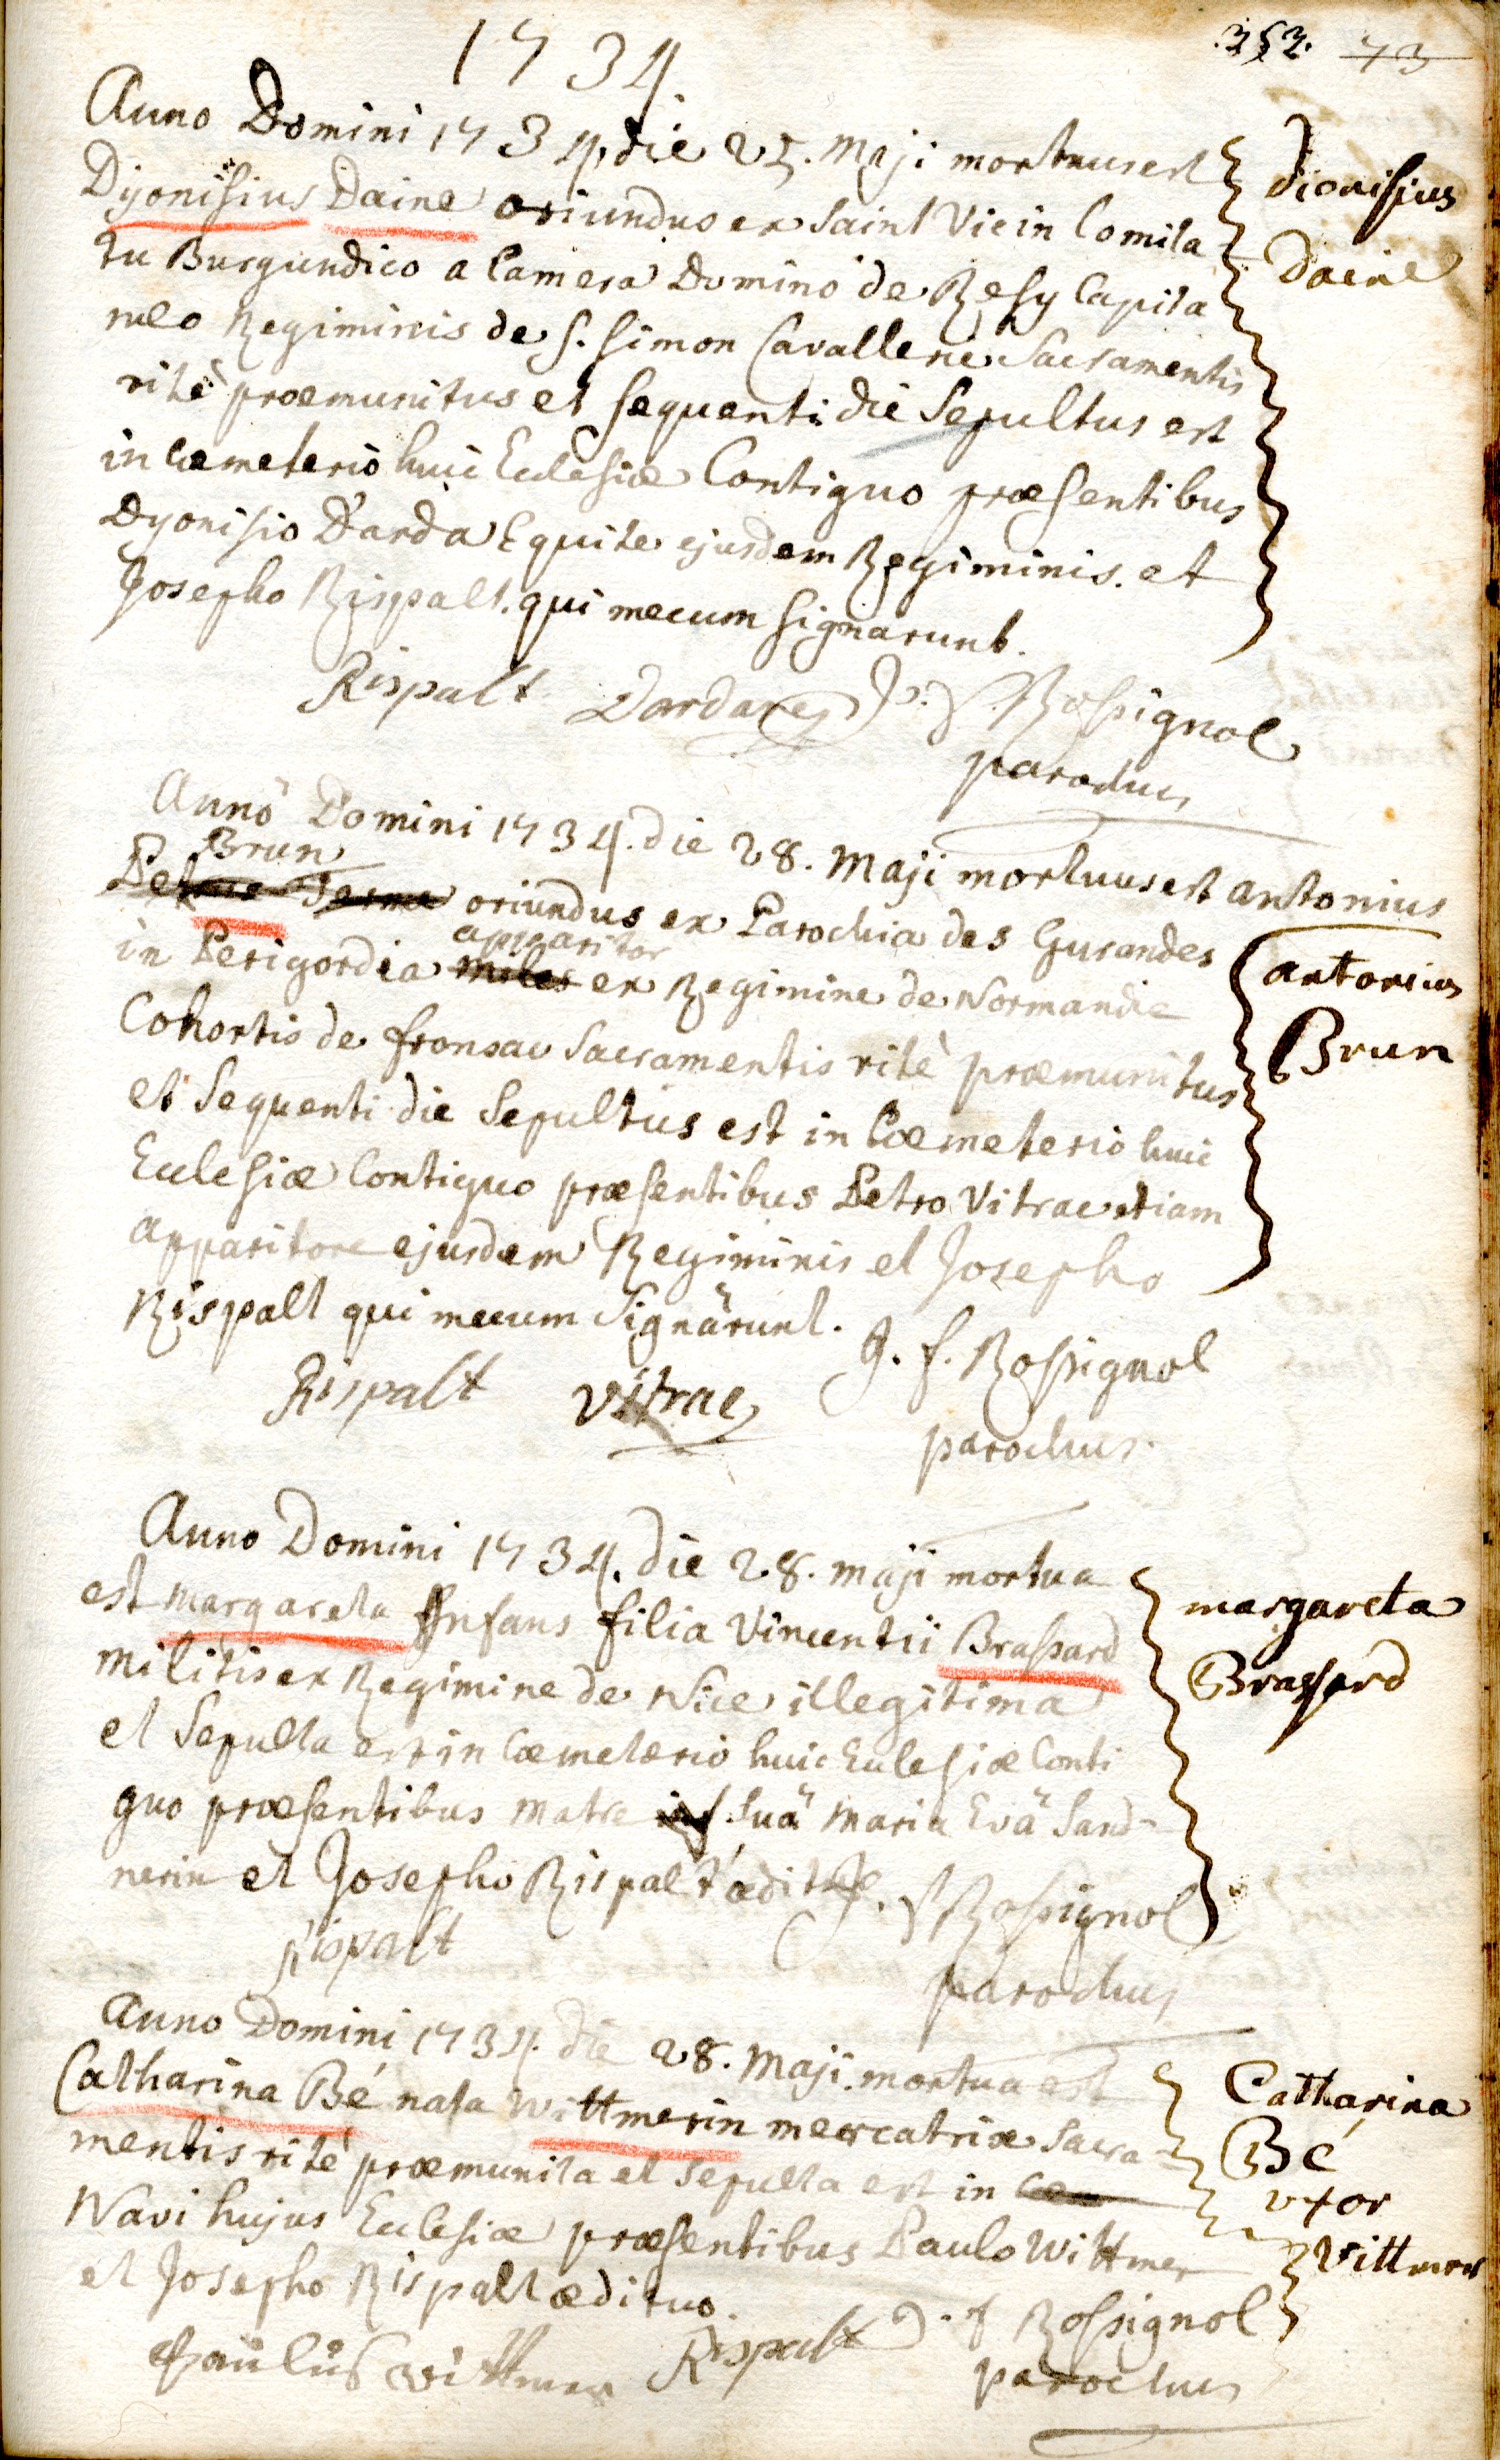 1734
252. 73
Anno Domini 1734 die 25. Maji mortuus est
Dyonisius Daine oriundus ex Saint Vie in Comita
tu Burgundico a Camera Domino de Resy Capita
neo Regiminis de S. Simon Cavallerie Sacramentis
ritè praemunitus et sequenti die Sepultus est
in Coemeterio huic Ecclesiae Contiguo praesentibus
Dyonisio Darda Equite ejusdem Regiminis. et
Josepho Rispalt. qui mecum signarunt.
Dionisius
Daine
Rispalt Dardaney J. F. Rossignol
parochus
Anno Domini 1734. die 28. Maji mortuus est antonius
Brun
oriundus ex Parochia des Gurandes
apparitor
in Perigordia miles ex Regimine de Normandie
Cohortis de fronsac Sacramentis ritè praemunitus
et Sequenti die Sepultus est in Coemeterio huic
Ecclesiae Contiguo praesentibus Petro Vitrac etiam
apparitore ejusdem Regiminis et Josepho
Rispalt qui mecum Signârunt.
antonius
Brun
J. f. Rossignol
Rispalt Vitrac
parochus.
Anno Domini 1734. die 28. maji mortua
est margareta Infans filia Vincentii Brassard
militis ex Regimine de Nice illegitima
et Sepulta est in Coemeterio huic Ecclesiae Conti
guo praesentibus matre suâ Maria Evâ Sand-
nerin et Josepho Rispalt aedituo
margareta
Brassard
J. F. Rossignol
Rispalt
parochus
Anno Domini 1734. die 28. Maji. mortua est
Catharina Bé nata Wittmerin mercatrix Sacra-
mentis ritè praemunita et Sepulta est in Coe
Navi hujus Ecclesiae praesentibus Paulo Wittmer
et Josepho Rispalt aedituo.
Catharina
Bé
uxor
Vittmer
Paulus Wittmer Rispalt J. f Rossignol
parochus